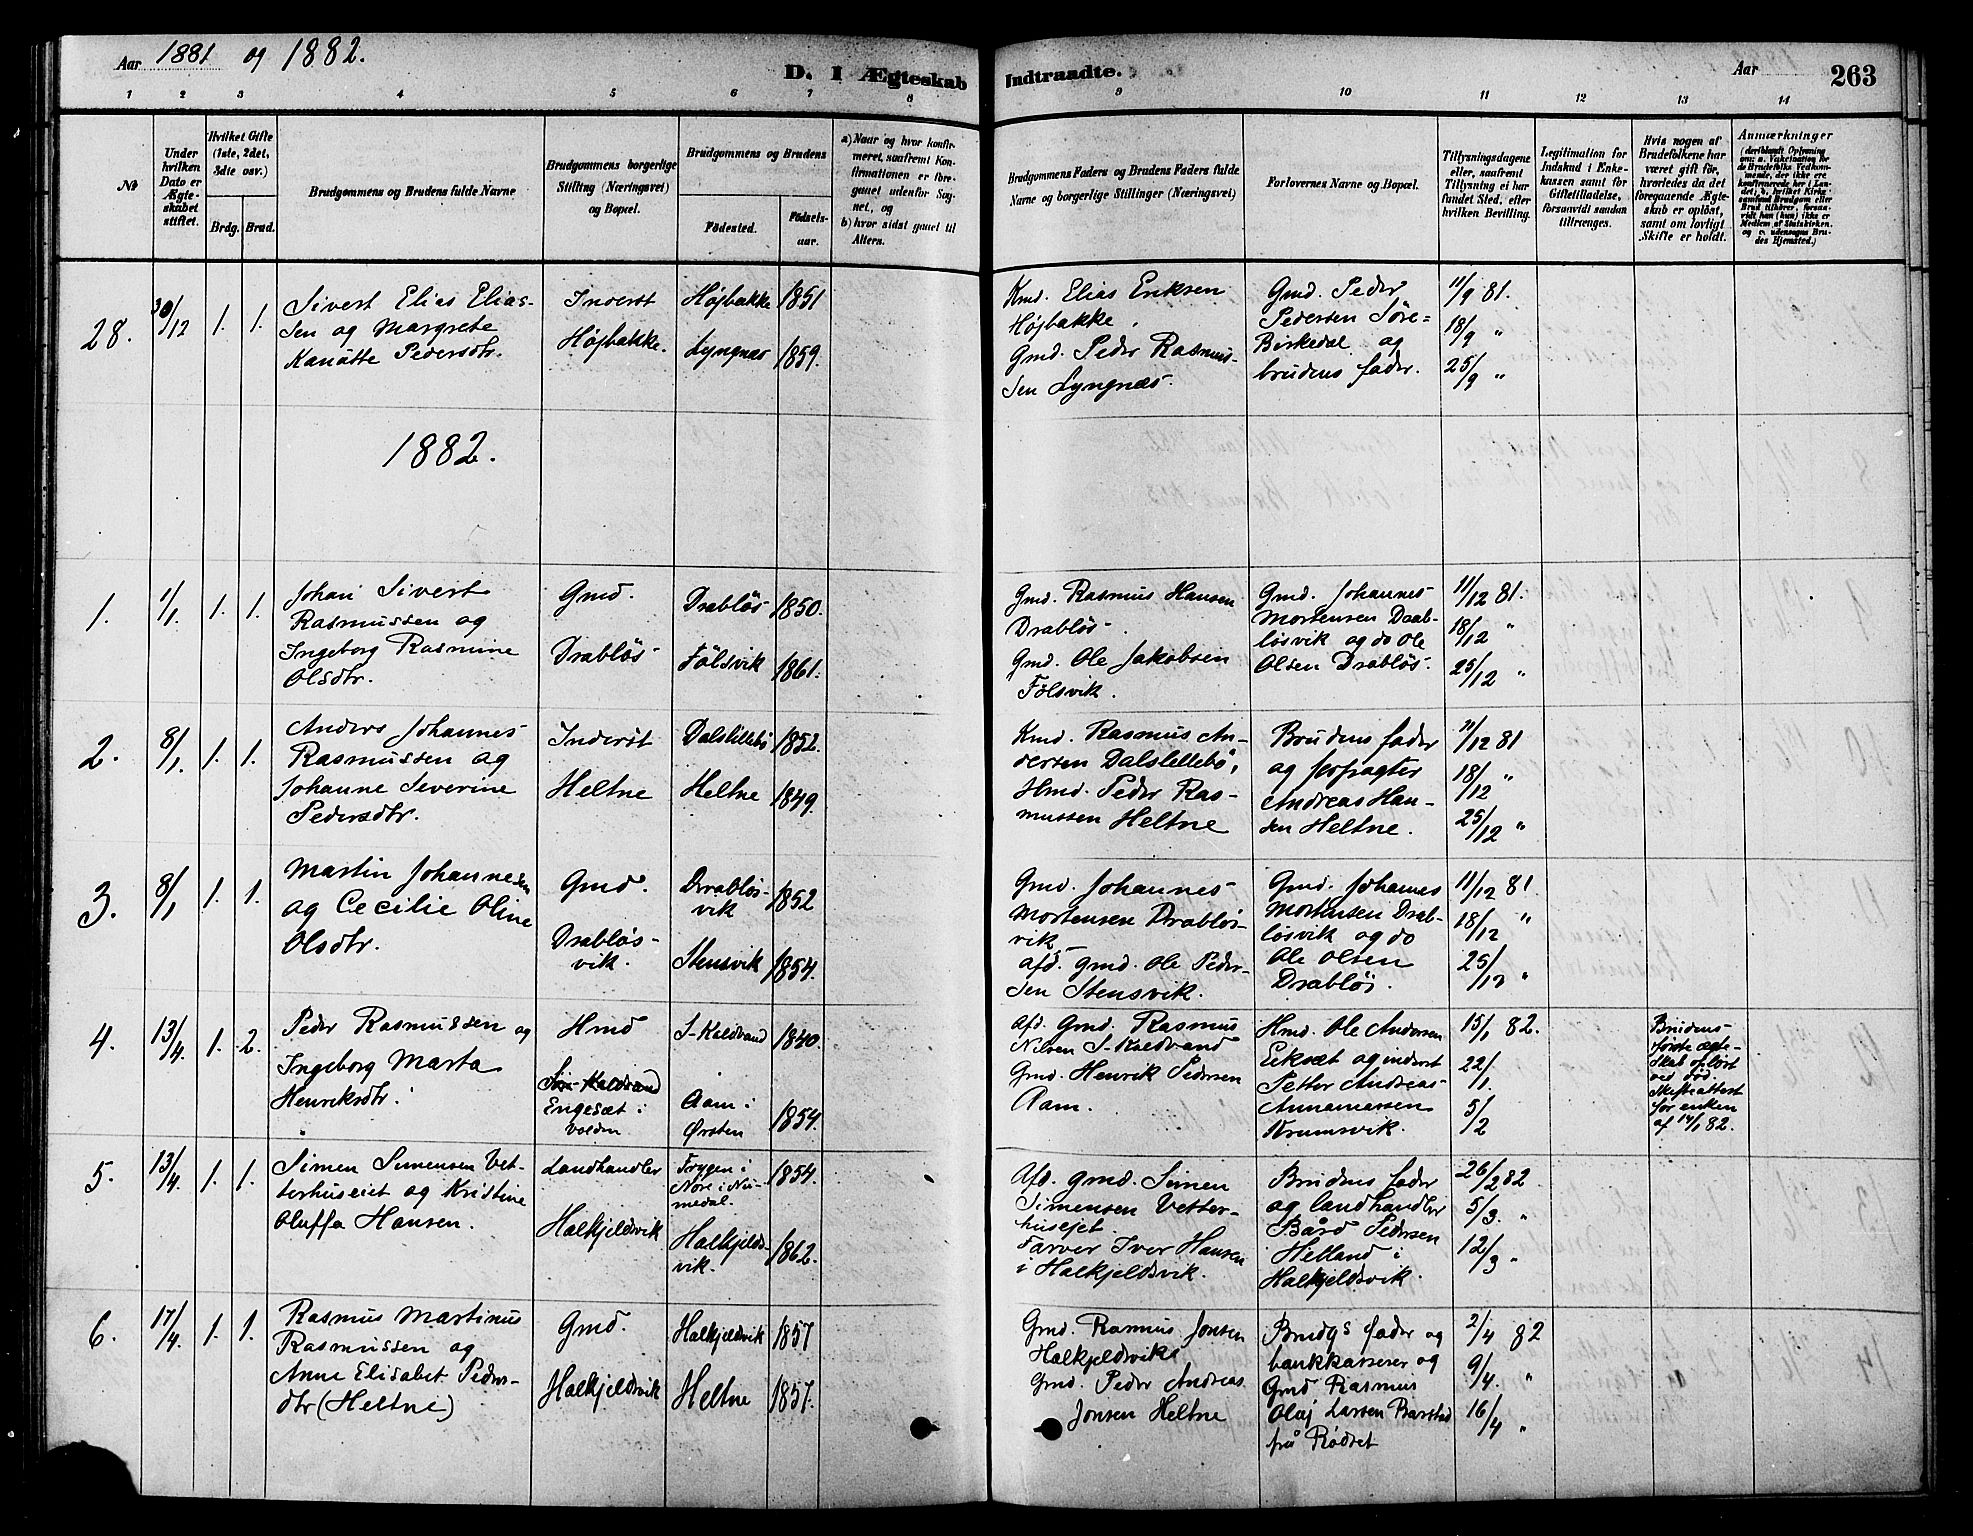 Aar 1881 og 1882.
D. 1 Ægteskab Indtraadte.
Aar
263
1 2 3 4 5 6 7 8 9 10 11 12 13 14
№
Under hvilken Dato er Ægteskabet stiftet.
Hvilket Gifte (1ste, 2det, 3dte osv.)
Brdg. Brud.
Brudgommens og Brudens fulde Navne
Brudgommens borgerlige Stilling (Næringsvei) og Bopæl.
Brudgommens og Brudens
Fødested.
Fødselsaar.
a) Naar og hvor konfirmeret, saafremt Konfirmationen er foregaaet udenfor Sognet, og
b) hvor sidst gaaet til Alters.
Brudgommens Faders og Brudens Faders fulde Navne og borgerlige Stillinger (Næringsvei)
Forlovernes Navne og Bopæl.
Tillysningsdagene eller, saafremt Tillysning ei har fundet Sted, efter hvilken Bevilling.
Legitimation for Indskud i Enkekassen samt for Giftetilladelse, forsaavidt saadan tiltrænges.
Hvis nogen af Brudefolkene har været gift før, hvorledes da det foregaaende Ægteskab er opløst, samt om lovligt Skifte er holdt.
Anmærkninger
28.
30/12
1. 1.
Sivert Elias Elias-
sen og Margrete
Pedersdtr.
Højbakke.
Højbakke 1851
Lyngnæs 1859.
Kmd. Elias Eriksen
Højbakke.
Gmd. Peder Rasmus-
sen Lyngnæs.
Gmd. Peder
Pedersen Søre-
Birkedal og
brudens fader.
11/9 81.
18/9 "
25/9 "
1882.
1.
1/1
1. 1.
Johan Sivert
Rasmussen og
Ingeborg Rasmine
Olsdtr.
Gmd.
Drabløs
Drabløs 1850.
Følsvik 1861.
Gmd. Rasmus Hansen
Drabløs.
Gmd. Ole Jakobsen
Følsvik.
Gmd. Johannes
Mortensen Drab-
løsvik og do Ole
Olsen Drabløs.
11/12 81.
18/12 "
25/12 "
2.
8/1
1. 1.
Anders Johannes
Rasmussen og
Johanne Severine
Pedersdtr.
Inderst
Heltne
Dalslillebø 1852.
Heltne 1849.
Kmd. Rasmus An-
dersen Dalslillebø,
Hmd. Peder Ras-
mussen Heltne
Brudens fader
og forpagter
Andreas Han-
sen Heltne.
11/12 81
18/12 "
25/12 "
3.
8/1
1. 1.
Martin Johannesen
og Cecilie Oline
Olsdtr.
Gmd.
Drabløs-
vik.
Drabløs-
vik 1852
Stensvik 1854.
Gmd. Johannes
Mortensen Drabløs-
vik
afd. gmd. Ole Peder-
sen Stensvik.
Gmd. Johannes
Mortensen Drab-
løsvik og do
Ole Olsen
Drabløs.
11/12 81.
18/12 "
25/12 "
4.
13/4.
1. 2.
Peder Rasmussen og
Ingeborg Marta
Henriksdtr.
Hmd
Søre-Koldvand
Engesæt i
Volden
S-Koldvand 1840.
Aam i
Ørsten 1854.
Afd. Gmd. Rasmus
Nilsen S-Koldvand
Gmd. Henrik Pedersen
Aam.
Hmd. Ole Andersen
Eiksæt og inderst
Petter Andreas
Annamassen
Krumsvik.
15/1 82.
22/1.
5/2
Brudens
første ægte-
skab opløst
ved død.
Skifteattest
for enken
af 14/1 82.
5.
13/4.
1. 1.
Simen Simensen Vet-
terhuseiet og Kristine
Oluffa Hansen.
Landhandler
Halkjeldsvik
Frygen i
Nore i Nu-
medal. 1854.
Halkjelds-
vik. 1862.
Afd. gmd. Simen
Simensen Vetter-
husejet.
Farver Iver Hansen
i Halkjeldsvik.
Brudens fader
og landhandler
Bård Pedersen
Helland i
Halkjeldsvik.
26/2 82
5/3. "
12/3 "
6.
17/4.
1. 1.
Rasmus Martinus
Rasmussen og
Anne Elisabet Peders-
dtr (Heltne)
Gmd.
Halkjeldsvik
Halkjeldsvik 1857
Heltne 1857.
Gmd. Rasmus Jonsen
Halkjeldsvik
Gmd. Peder Andreas
Jonsen Heltne
Brudgs fader og
bankkasserer og
Gmd Rasmus
Olaj Larsen Barstad
frå Rødset
2/4 82
9/4. "
16/4 "